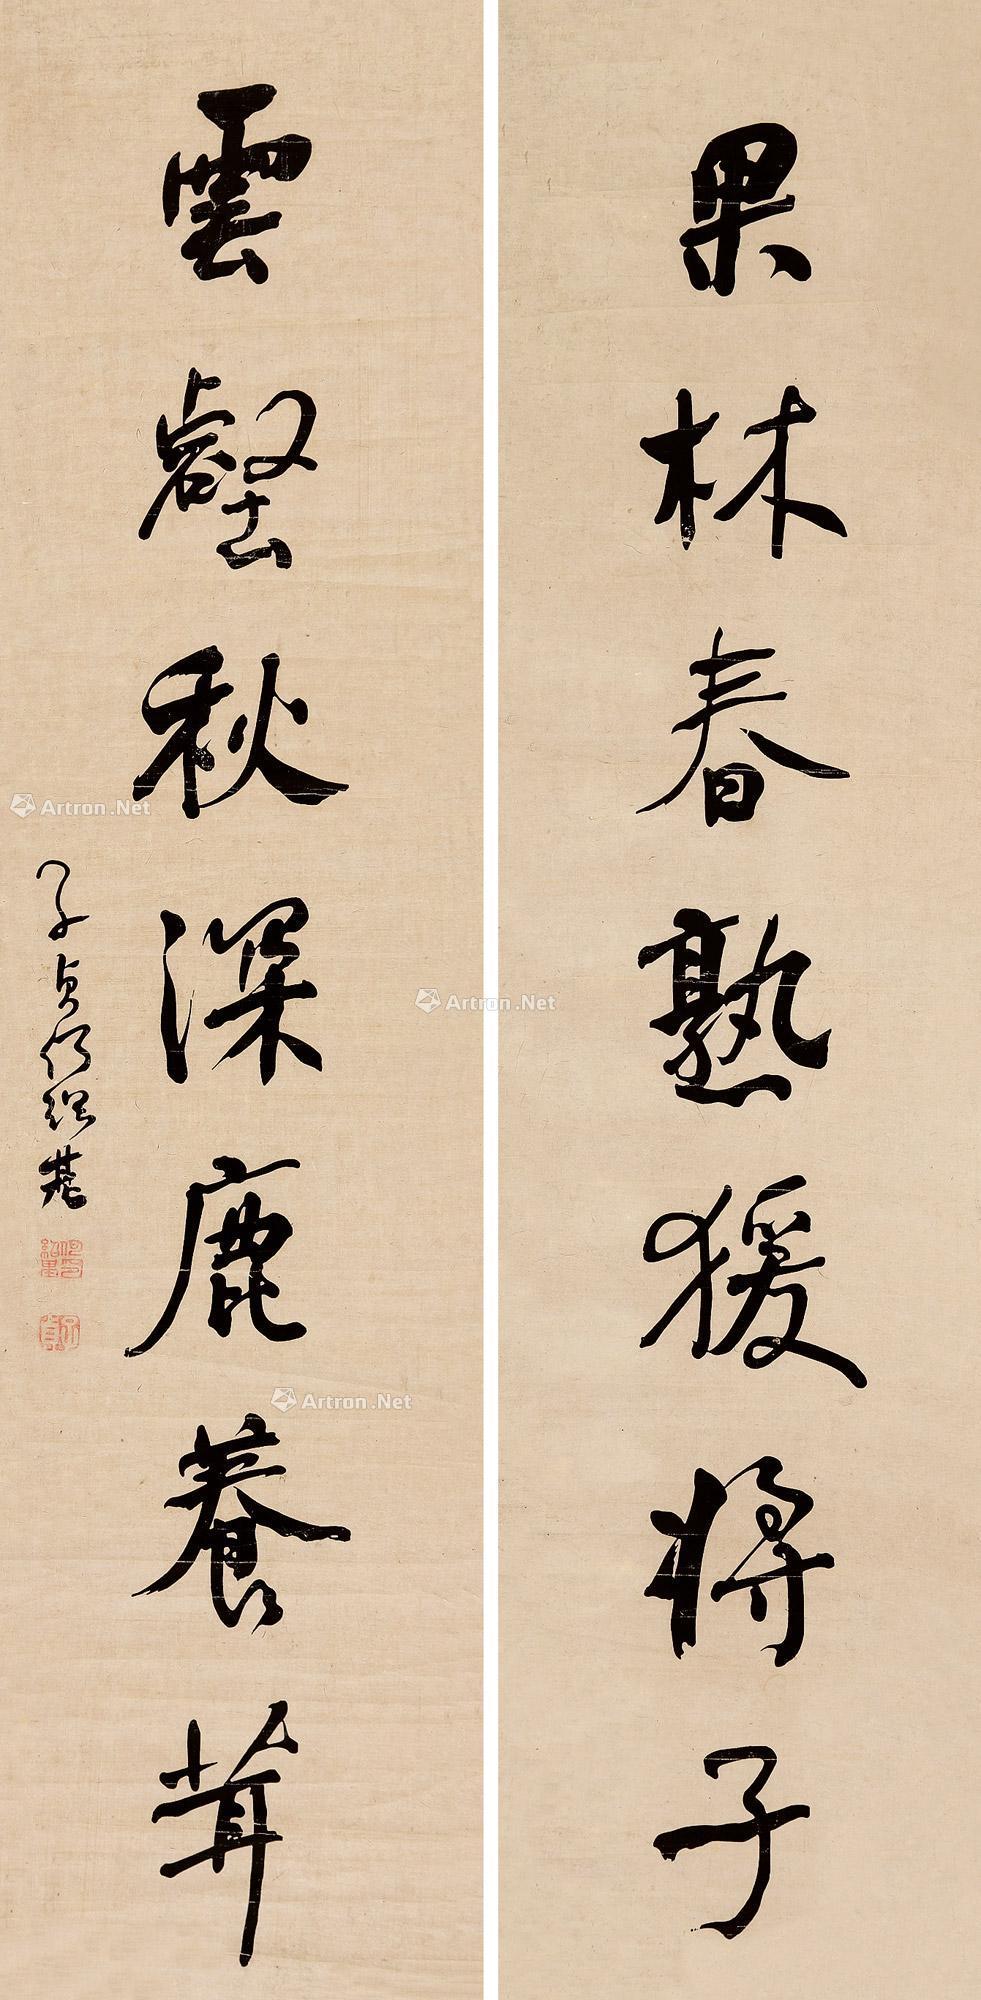 果林春熟猨將子
雲壑秋深鹿養茸
子貞何紹基
Artron.Net
Artron.Net
Artron.Net